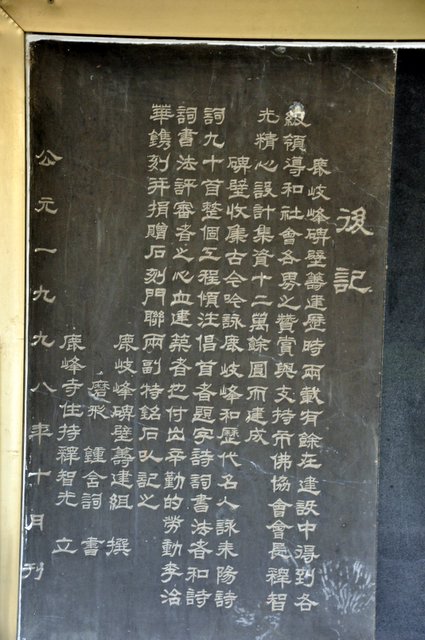 後記
鹿岐峰碑壁籌建歷時兩載有餘在建設中得到各
級領導和社會各界之贊賞與支持市佛協會會長禪智
光精心設計集資十二萬餘圓而建成
碑壁收集古今吟詠鹿岐峰和歷代名人詠耒陽詩
詞九十首整個工程傾注倡首者題字詩詞書法者和詩
詞書法評審者之心血建築者也付出辛勤的勞動李洽
華鐫刻并捐贈石刻門聯兩副特銘石以記之
鹿岐峰碑壁籌建組 撰
磨形 鍾金詞 書
鹿峰寺住持釋智光 立
公元一九九八年十月刊